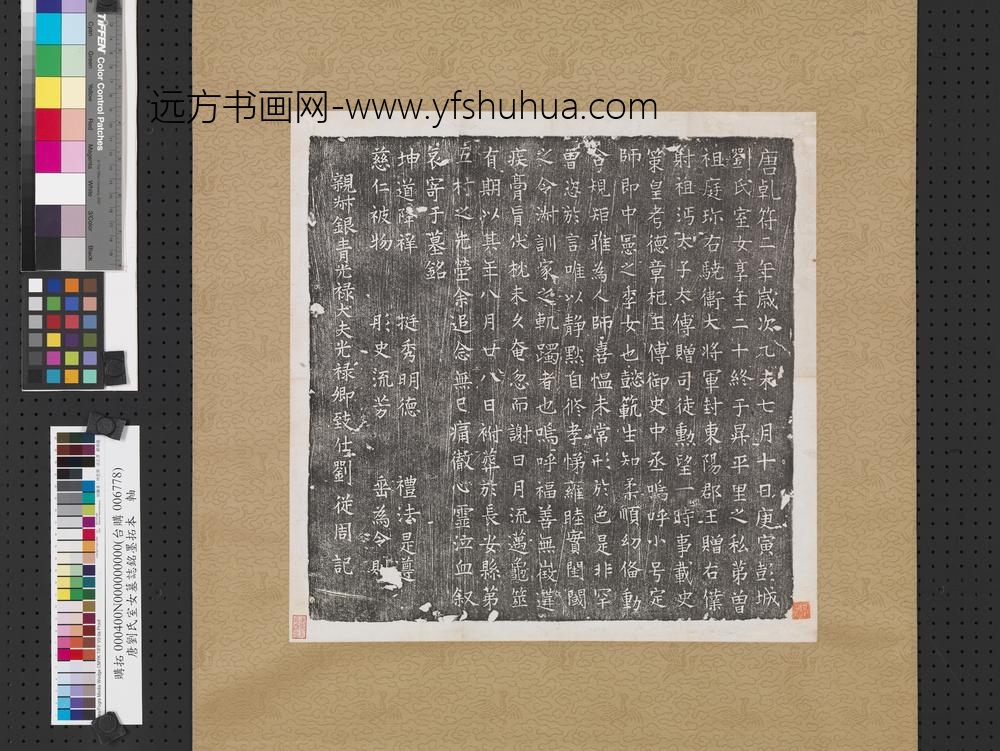 远方书画网-www.yfshuhua.com
唐乹符二年歳次乙未七月十日庚寅彭城
劉氏室女享年二十終于昇平里之私第曾
祖庭珎右驍衛大将軍封東陽郡王贈右僕
射祖沔太子太傅贈司徒勲望一時事載史
策皇考德章杞王傅御史中丞嗚呼小号定
師即中憲之季女也懿範生知柔順幼俻動
合規矩雅為人師喜愠未常形於色是非罕
曽恣於言唯以静黙自修孝悌雍睦實閨閫
之令淑訓家之軌躅者也嗚呼福善無徴遘
疾膏肓伏枕未久奄忽而謝日月流邁龜筮
有期以其年八月廿八日祔葬於長安縣第
五村之先塋余追念無已痛徹心靈泣血叙
哀寄于墓銘
坤道降祥 挺秀明德 禮法是遵
慈仁被物 彤史流芳 垂為令則
親叔銀青光禄大夫光禄卿致仕劉從周記
TIFFEN Color Control Patches
Cyan
Green
Yellow
Red
Magenta
White
3/Color
Black
購拓 000400N000000000(台購 006778)
唐劉氏室女墓誌銘墨拓本 軸